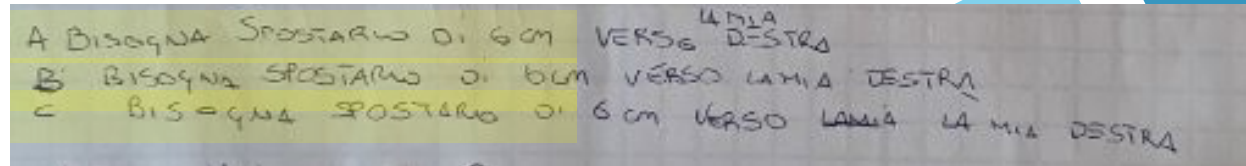 A BISOGNA SPOSTARLO DI 6 CM VERSO LA MIA DESTRA
B BISOGNA SPOSTARLO DI 6CM VERSO LA MIA DESTRA
C BISOGNA SPOSTARLO DI 6 CM VERSO LA MIA LA MIA DESTRA